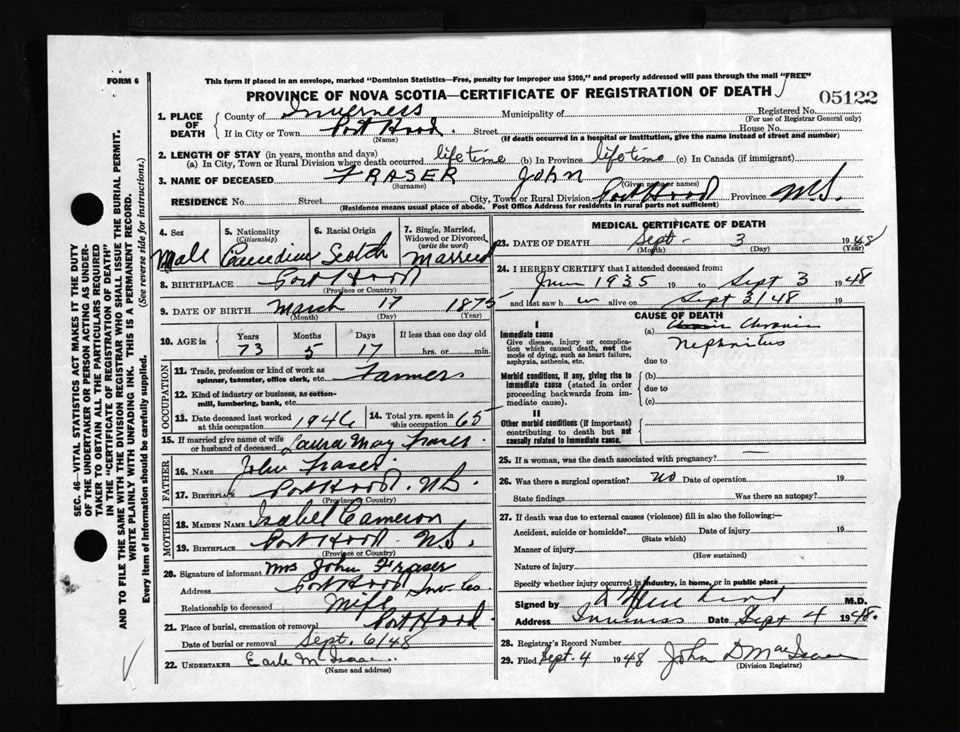 FORM 6
This form if placed in an envelope, marked "Dominion Statistics—Free, penalty for improper use $300," and properly addressed will pass through the mail "FREE"
PROVINCE OF NOVA SCOTIA—CERTIFICATE OF REGISTRATION OF DEATH
05122
1. PLACE OF DEATH
County of Inverness Municipality of Registered No.
(For use of Registrar General only)
If in City or Town Port Hood. Street House No.
(Name) (If death occurred in a hospital or institution, give the name instead of street and number)
2. LENGTH OF STAY (in years, months and days)
(a) In City, Town or Rural Division where death occurred lifetime (b) In Province lifetime (c) In Canada (if immigrant)
3. NAME OF DECEASED FRASER John
(Surname) (Given name or names)
RESIDENCE No. Street City, Town or Rural Division Port Hood Province N.S.
(Residence means usual place of abode. Post Office Address for residents in rural parts not sufficient)
4. Sex
Male
5. Nationality
(Citizenship)
Canadian
6. Racial Origin
Scotch
7. Single, Married, Widowed or Divorced
(write the word)
Married
8. BIRTHPLACE Port Hood
(Province or Country)
9. DATE OF BIRTH March 17 1875
(Month) (Day) (Year)
10. AGE in
Years Months Days If less than one day old
73 5 17 hrs. or min.
OCCUPATION
11. Trade, profession or kind of work as spinner, teamster, office clerk, etc. Farmer
12. Kind of industry or business, as cotton-mill, lumbering, bank, etc.
13. Date deceased last worked at this occupation 1946
14. Total yrs. spent in this occupation 65
15. If married give name of wife or husband of deceased Laura May Fraser.
FATHER
16. NAME John Fraser.
17. BIRTHPLACE Port Hood. N.S.
(Province or Country)
MOTHER
18. MAIDEN NAME Isabel Cameron
19. BIRTHPLACE Port Hood - N.S.
(Province or Country)
20. Signature of informant Mrs John Fraser
Address Port Hood Inv. Co.
Relationship to deceased Wife
21. Place of burial, cremation or removal Port Hood.
Date of burial or removal Sept. 6/48
22. UNDERTAKER Earle
(Name and address)
MEDICAL CERTIFICATE OF DEATH
23. DATE OF DEATH Sept - 3 1948
(Month) (Day) (Year)
24. I HEREBY CERTIFY that I attended deceased from:
June 1935 19 to Sept 3 1948
and last saw h im alive on Sept 3/48 19
CAUSE OF DEATH
I
Immediate cause
Give disease, injury or complication which caused death, not the mode of dying, such as heart failure, asphyxia, asthenia, etc.
(a) Chronic
Nephritus
due to
Morbid conditions, if any, giving rise to immediate cause (stated in order proceeding backwards from immediate cause).
(b)
due to
(c)
II
Other morbid conditions (if important) contributing to death but not causally related to immediate cause.
25. If a woman, was the death associated with pregnancy? —
26. Was there a surgical operation? No Date of operation 19
State findings Was there an autopsy?
27. If death was due to external causes (violence) fill in also the following:—
Accident, suicide or homicide? Date of injury 19
(State which)
Manner of injury
(How sustained)
Nature of injury
Specify whether injury occurred in industry, in home, or in public place
Signed by M.D.
Address Inverness Date Sept 4 1948.
28. Registrar's Record Number
29. Filed Sept. 4 1948 John D
(Division Registrar)
SEC. 46—VITAL STATISTICS ACT MAKES IT THE DUTY
OF THE UNDERTAKER OR PERSON ACTING AS UNDER-
TAKER TO OBTAIN ALL THE PARTICULARS REQUIRED
IN THE "CERTIFICATE OF REGISTRATION OF DEATH"
AND TO FILE THE SAME WITH THE DIVISION REGISTRAR WHO SHALL ISSUE THE BURIAL PERMIT.
WRITE PLAINLY WITH UNFADING INK. THIS IS A PERMANENT RECORD.
Every item of information should be carefully supplied. (See reverse side for instructions.)